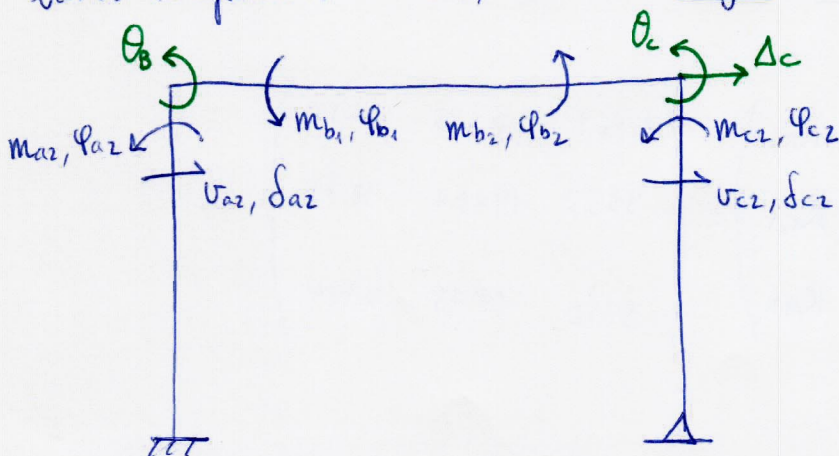 θ_B
θ_c
Δ_c
m_a2, φ_a2
m_b1, φ_b1
m_b2, φ_b2
m_c2, φ_c2
v_a2, δ_a2
v_c2, δ_c2